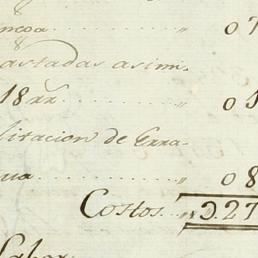 ncoa ........ „ 07
astadas asim-
18rr ........ „ 05
litacion de Erra-
ua ........ „ 08
Costos .. „ 227
Labor